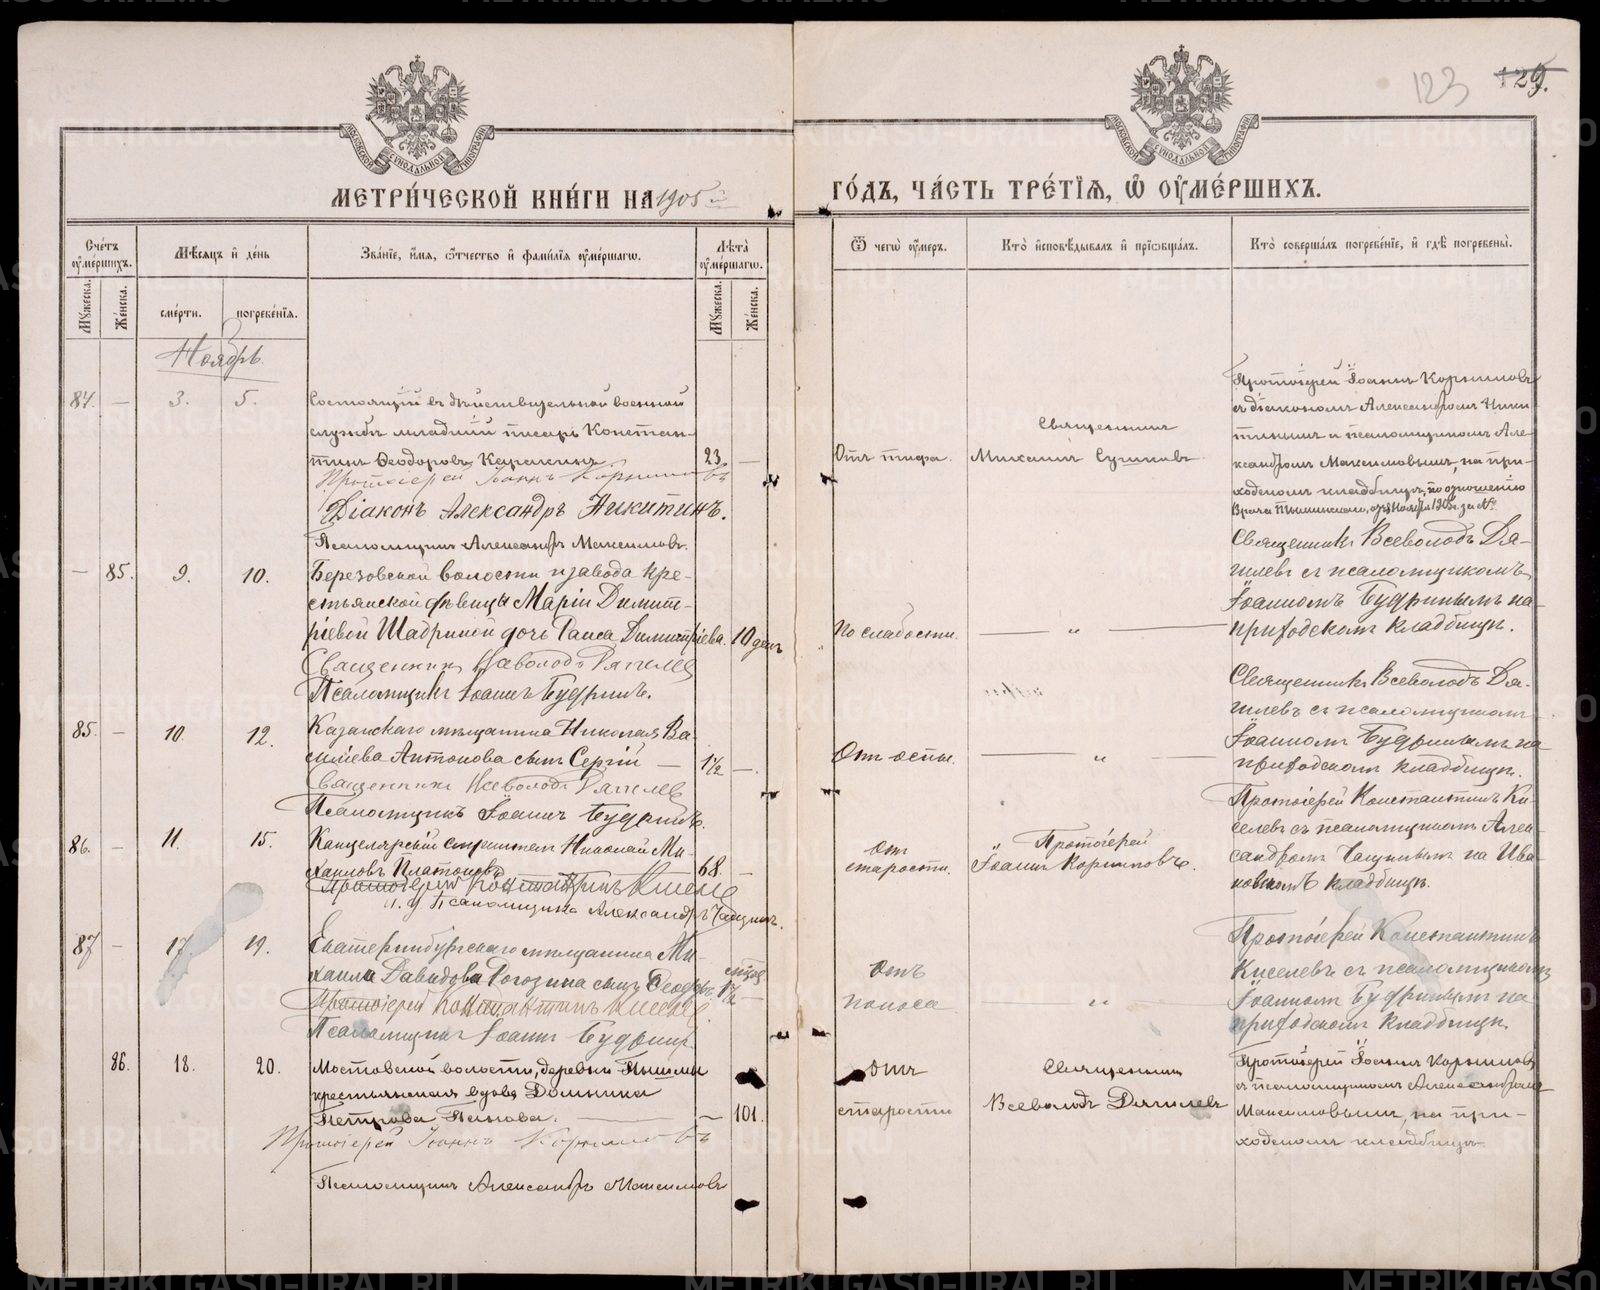 123
129.
МЕТРИ́ЧЕСКОЙ КНИ́ГИ НА 1905 й
ГО́ДЪ, ЧА́СТЬ ТРЕ́ТІЯ, Ѡ ОУМЕ́РШИХЪ.
Сче́тъ оуме́ршихъ.
Мѣ́сяцъ и де́нь
Зва́нїе, и́мя, о́тчество и фами́лїя оуме́ршаго.
Лѣ́та оуме́ршаго.
Ѿ чегѡ̀ оу́меръ.
Кто̀ исповѣ́дывалъ и прїѡбща́лъ.
Кто̀ соверша́лъ погребе́нїе, и гдѣ̀ погребены̀.
Му́жеска.
Же́нска.
сме́рти.
погребе́нїя.
Му́жеска.
Же́нска.
Ноябрь.
84. — 3. 5.
Состоящій въ дѣйствительной военной
службѣ младшій писарь Констан-
тинъ Ѳеодоровъ Каракинъ. 23 —
Протоіерей Іоаннъ Корниловъ
Діаконъ Александръ Никитинъ.
Псаломщикъ Александръ Максимовъ.
Отъ тифа.
Священникъ
Михаилъ Сушковъ
Протоіерей Іоаннъ Корниловъ
съ діакономъ Александромъ Ники-
тинымъ и псаломщикомъ Але-
ксандромъ Максимовымъ, на при-
ходскомъ кладбищѣ, по отношенію
— 85. 9. 10.
Березовской волости и завода кре-
стьянской дѣвицы Маріи Димит-
ріевой Шадриной дочь Раиса Димитріева. 10 дней
Священникъ Всеволодъ Дягилев
Псаломщикъ Іоаннъ Будринъ.
По слабости. — „ —
Священникъ Всеволодъ Дя-
гилевъ съ псаломщикомъ
Іоанномъ Будринымъ на
приходскомъ кладбищѣ.
85. — 10. 12.
Казанскаго мѣщанина Николая Ва-
силіева Антонова сынъ Сергій — 1½ —.
Священникъ Всеволодъ Дягилев
Псаломщикъ Іоаннъ Будринъ.
Отъ оспы. — „ —
Священникъ Всеволодъ Дя-
гилевъ съ псаломщикомъ
Іоанномъ Будринымъ на
приходскомъ кладбищѣ.
86. — 11. 15.
Канцелярскій служитель Николай Ми-
хаиловъ Платоновъ 68. —
Протоіерей Константинъ Киселев
и. д. Псаломщика Александръ Чащинъ.
Отъ
старости.
Протоіерей
Іоаннъ Корниловъ.
Протоіерей Константинъ Ки-
селевъ съ псаломщикомъ Алек-
сандромъ Чащинымъ на Ива-
новскомъ кладбищѣ.
87 — 17. 19.
Екатеринбургскаго мѣщанина Ми-
хаила Давидова Рогозина сынъ Ѳеодоръ.
Протоіерей Константинъ Киселев
Псаломщикъ Іоаннъ Будринъ.
Отъ
поноса — „ —
Протоіерей Константинъ
Киселевъ съ псаломщикомъ
Іоанномъ Будринымъ на
приходскомъ кладбищѣ.
86. 18. 20.
Мостовской волости, деревни Пышмы
крестьянская вдова Домника
Петрова Панова. — 101.
Протоіерей Іоаннъ Корниловъ
Псаломщикъ Александръ Максимовъ
Отъ
старости
Священникъ
Всеволодъ Дягилевъ
Протоіерей Іоаннъ Корниловъ
съ псаломщикомъ Александромъ
Максимовымъ, на при-
ходскомъ кладбищѣ.
METRIKI.GASO-URAL.RU